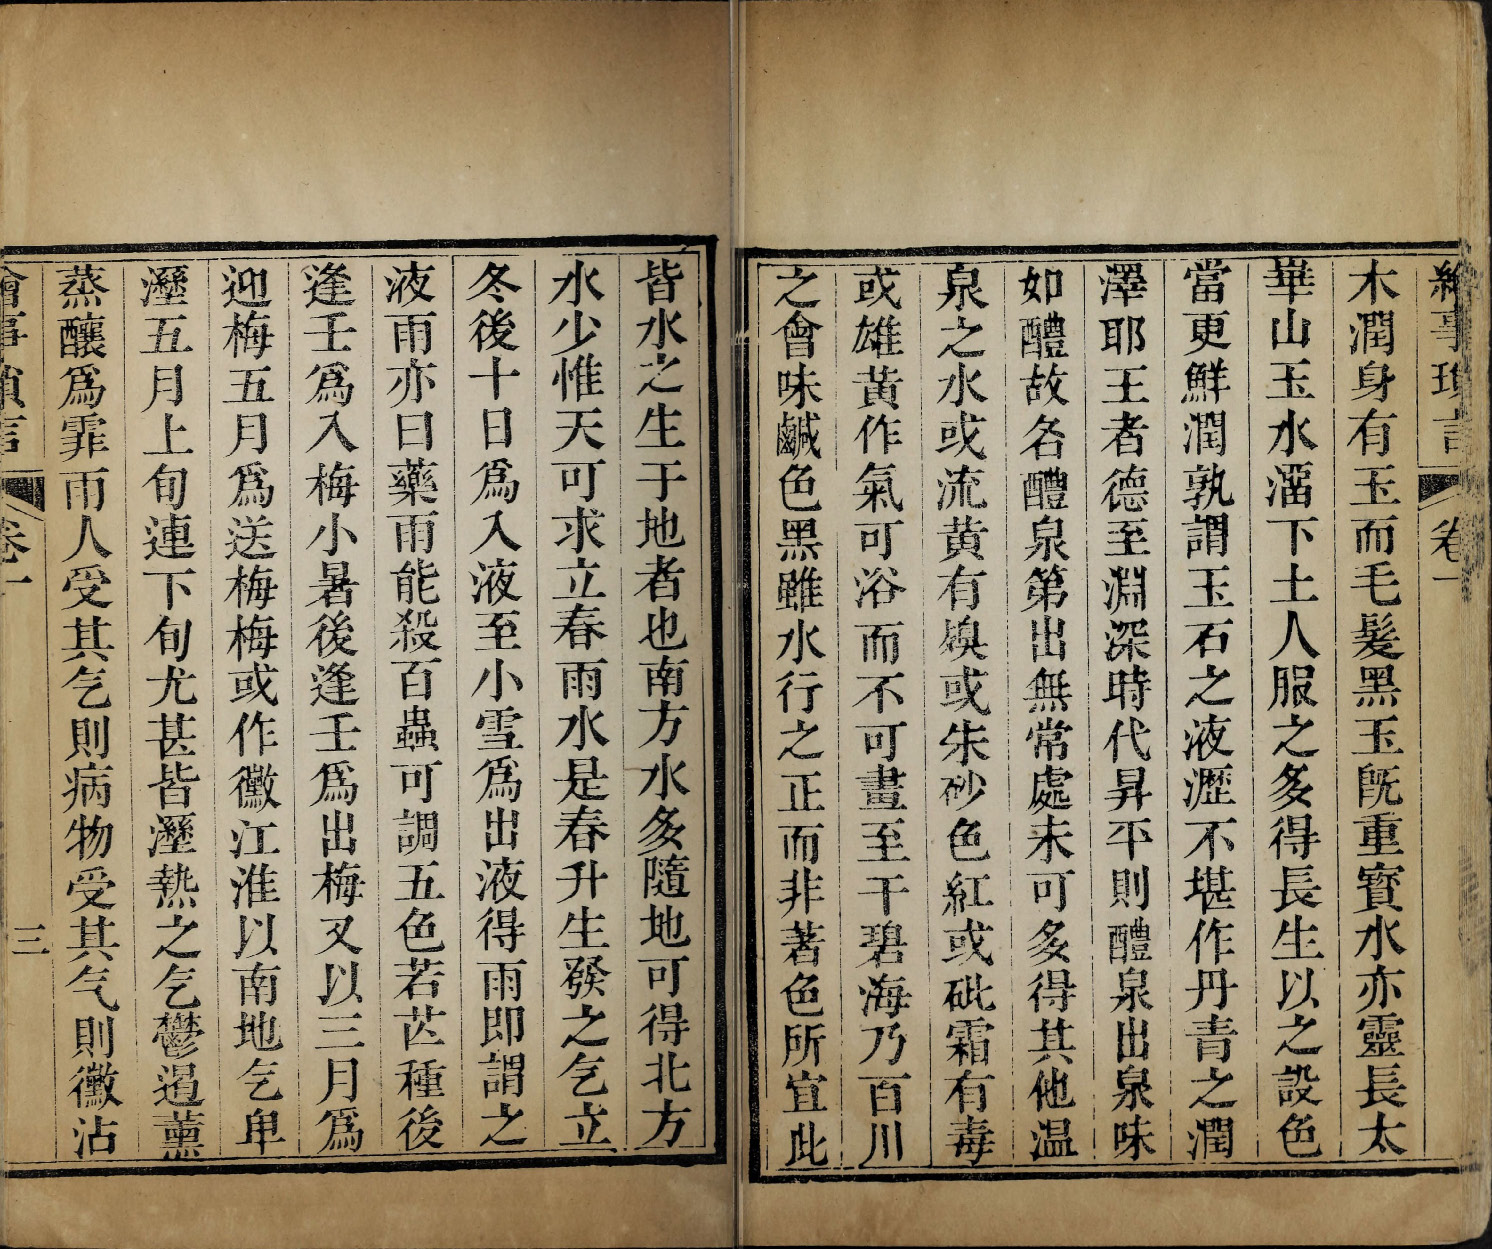 繪事瑣言
卷一
木潤身有玉而毛髮黑玉旣重寶水亦靈長太
崋山玉水溜下土人服之多得長生以之設色
當更鮮潤孰謂玉石之液瀝不堪作丹青之潤
澤耶王者德至淵深時代昇平則醴泉出泉味
如醴故名醴泉第出無常處未可多得其他温
泉之水或流黃有㷄或朱砂色紅或砒霜有毒
或雄黃作氣可浴而不可畫至于碧海乃百川
之會味鹹色黑雖水行之正而非著色所宜此
皆水之生于地者也南方水多隨地可得北方
水少惟天可求立春雨水是春升生發之气立
冬後十日爲入液至小雪爲出液得雨卽謂之
液雨亦曰藥雨能殺百蟲可調五色若芒種後
逢壬爲入梅小暑後逢壬爲出梅又以三月爲
迎梅五月爲送梅梅或作黴江淮以南地气卑
溼五月上旬連下旬尤甚皆溼熱之气鬱遏薰
蒸釀爲霏雨人受其气則病物受其气則黴沾
繪事瑣言
卷一
三